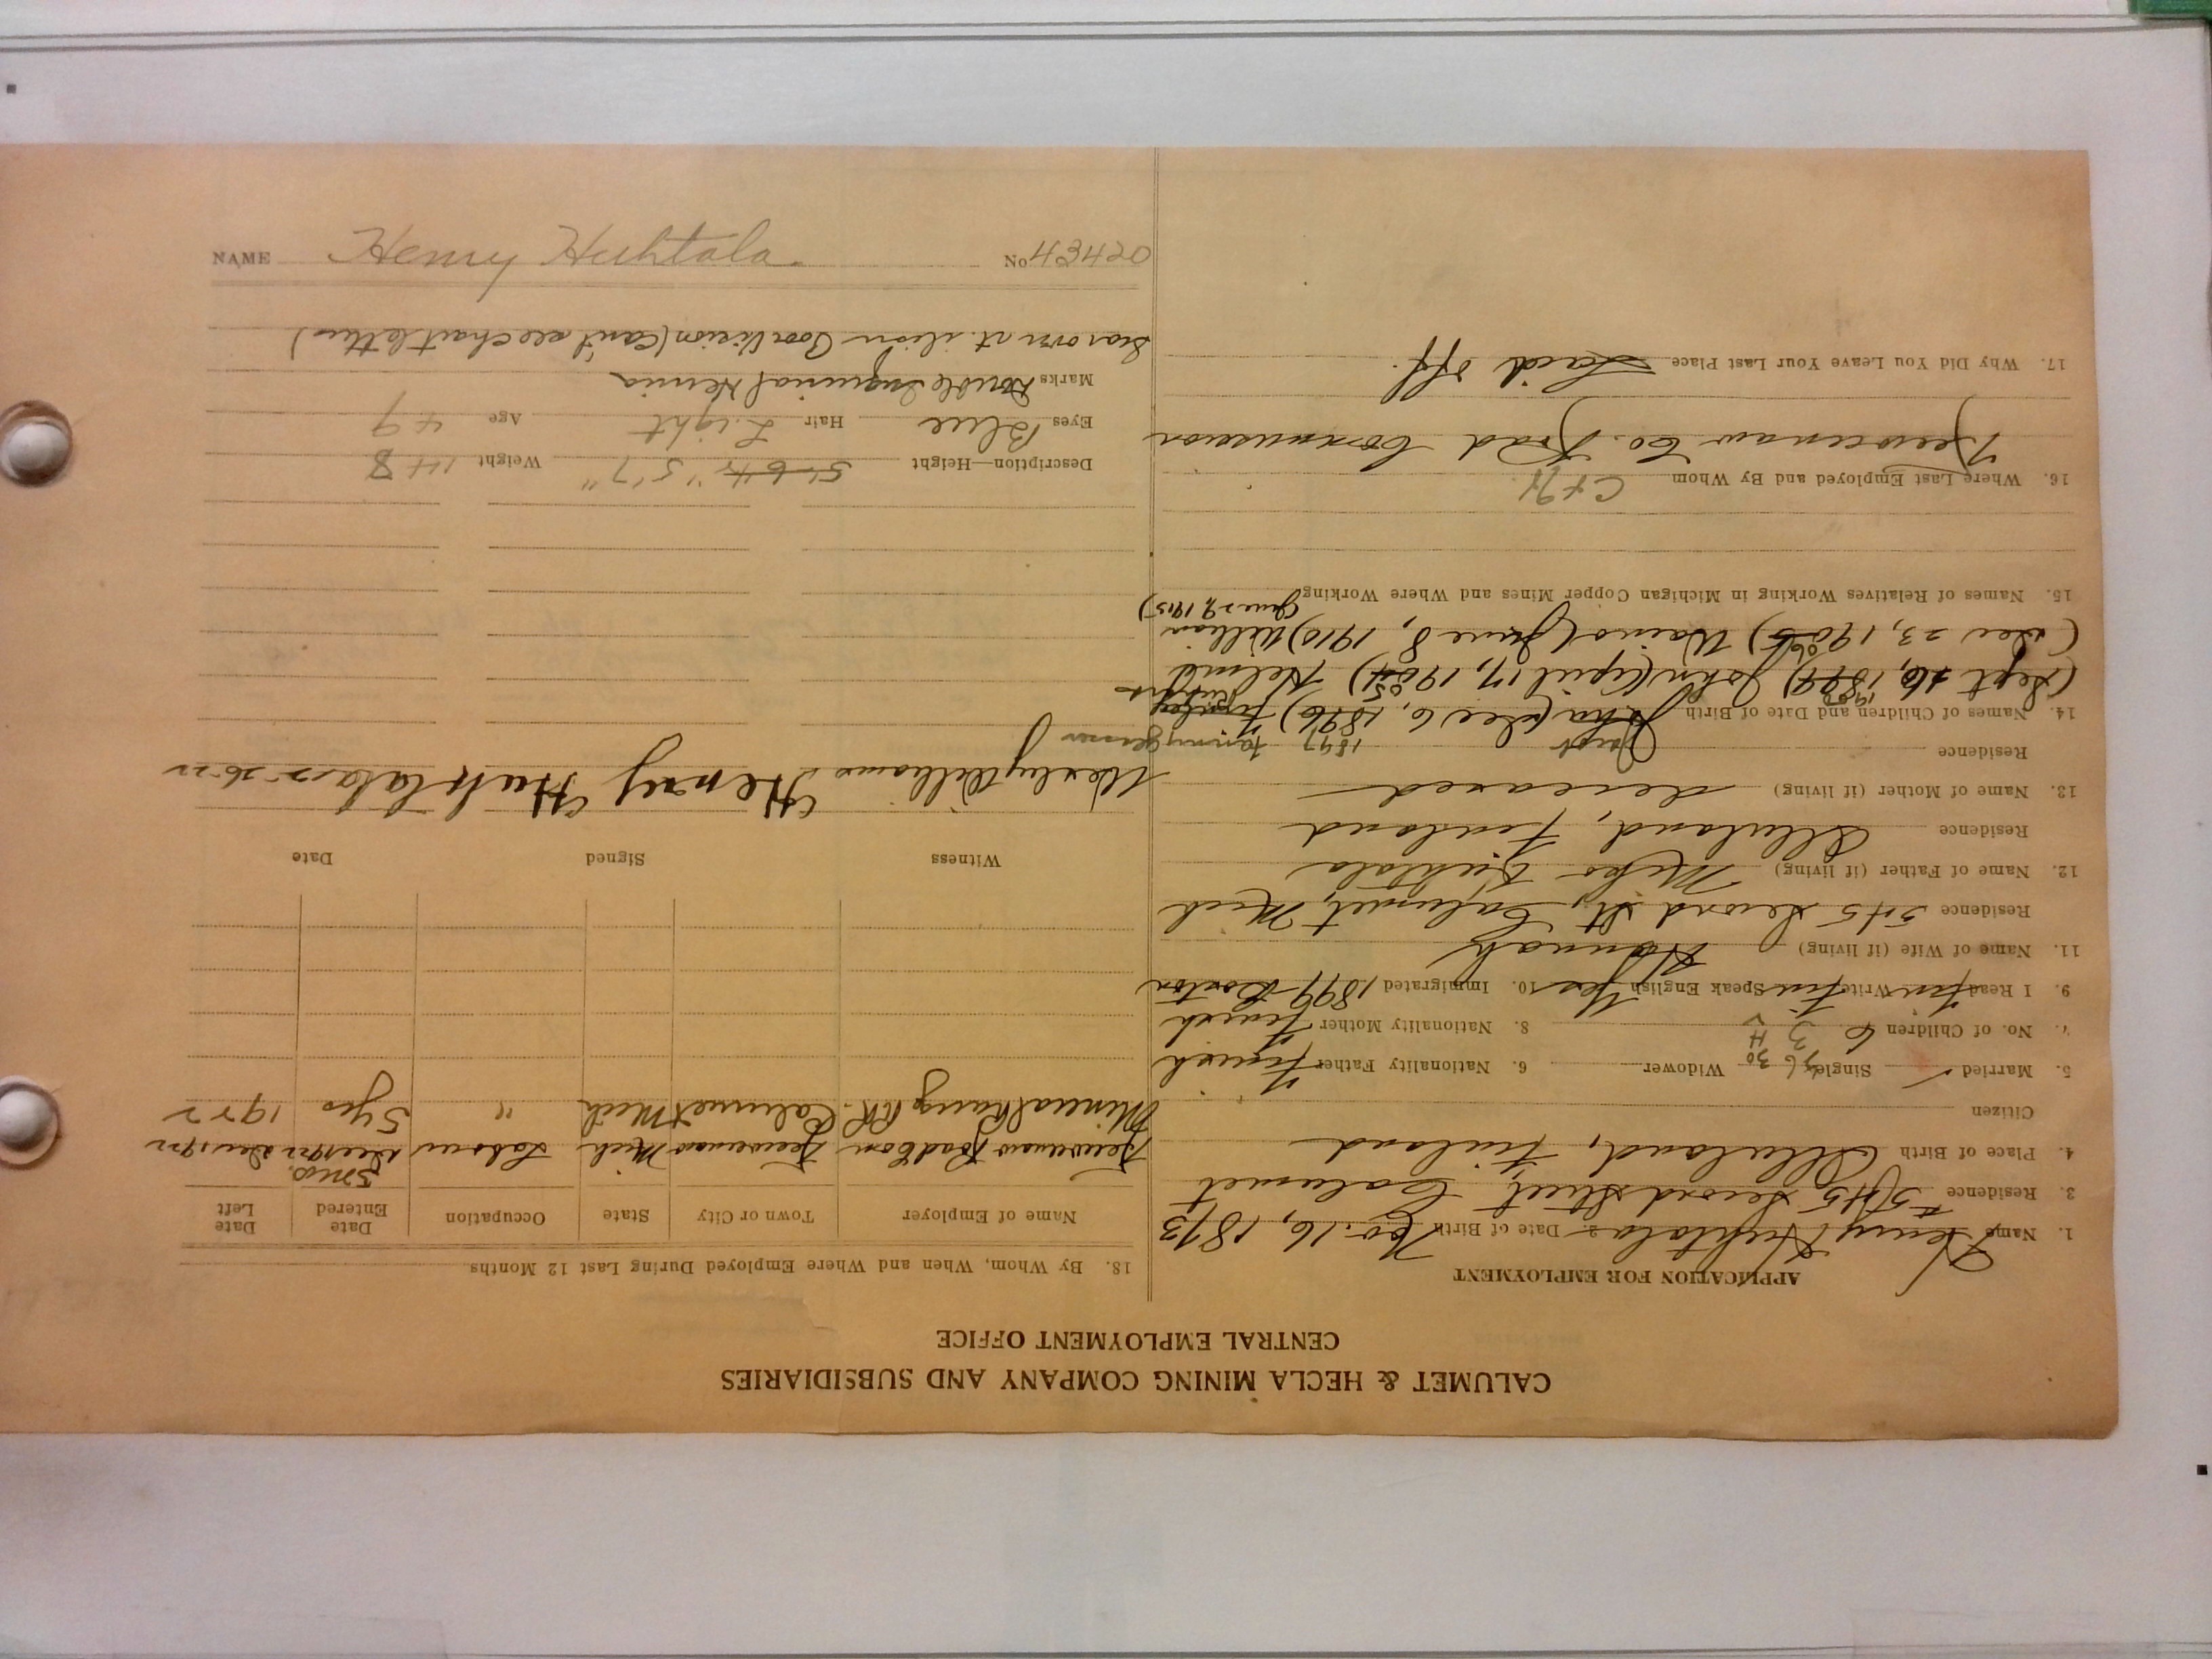 CALUMET & HECLA MINING COMPANY AND SUBSIDIARIES
CENTRAL EMPLOYMENT OFFICE
APPLICATION FOR EMPLOYMENT
1. Name Henry Huhtala 2. Date of Birth Nov. 16, 1873
3. Residence #545 Second Street, Calumet
4. Place of Birth Finland
Citizen
5. Married ✓ Single Widower 6. Nationality Father Finnish
7. No. of Children 6 8. Nationality Mother Finnish
9. I Read Fin Write Fin Speak English Yes 10. Immigrated 1899 Boston
11. Name of Wife (if living) Hannah
Residence 545 Second St, Calumet, Mich
12. Name of Father (if living) Huhtala
Residence Finland
13. Name of Mother (if living) deceased
Residence
14. Names of Children and Date of Birth (Dec 6, 1896)
(Sept 16, John (April 17, Helmi
(Dec 23, Waino (June 8, 1910) William
(June 29, 1915)
15. Names of Relatives Working in Michigan Copper Mines and Where Working
16. Where Last Employed and By Whom C+H
Keweenaw Co. Road Commission
17. Why Did You Leave Your Last Place Laid off.
18. By Whom, When and Where Employed During Last 12 Months
Name of Employer Town or City State Occupation Date Entered Date Left
Keweenaw Road Com Keweenaw Mich Labour 3 mos. Dec 1922
Mineral Range RR. Calumet Mich " 5 yrs 1922
Witness Signed Date
Wesley Williams Henry Huhtala 12-26-22
Description—Height 5-6¼" 5'7" Weight 148
Eyes Blue Hair Light Age 49
Marks Double Inguinal Hernia
Scar over rt. ilium Poor Vision (Can't see chart letters)
NAME Henry Huhtala. No 43420